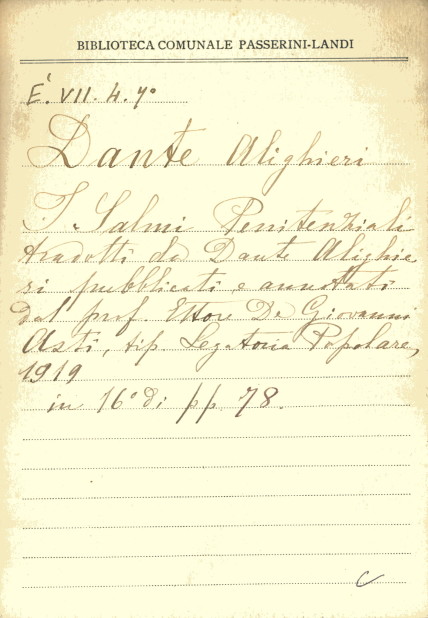 BIBLIOTECA COMUNALE PASSERINI-LANDI
E. VII. 4. 7°
Dante Alighieri
I Salmi Penitenziali
tradotti da Dante Alighie
ri pubblicati e annotati
dal prof. Ettore De Giovanni
Asti, tip. Legatoria Popolare,
1919
in 16° di pp. 78.
C